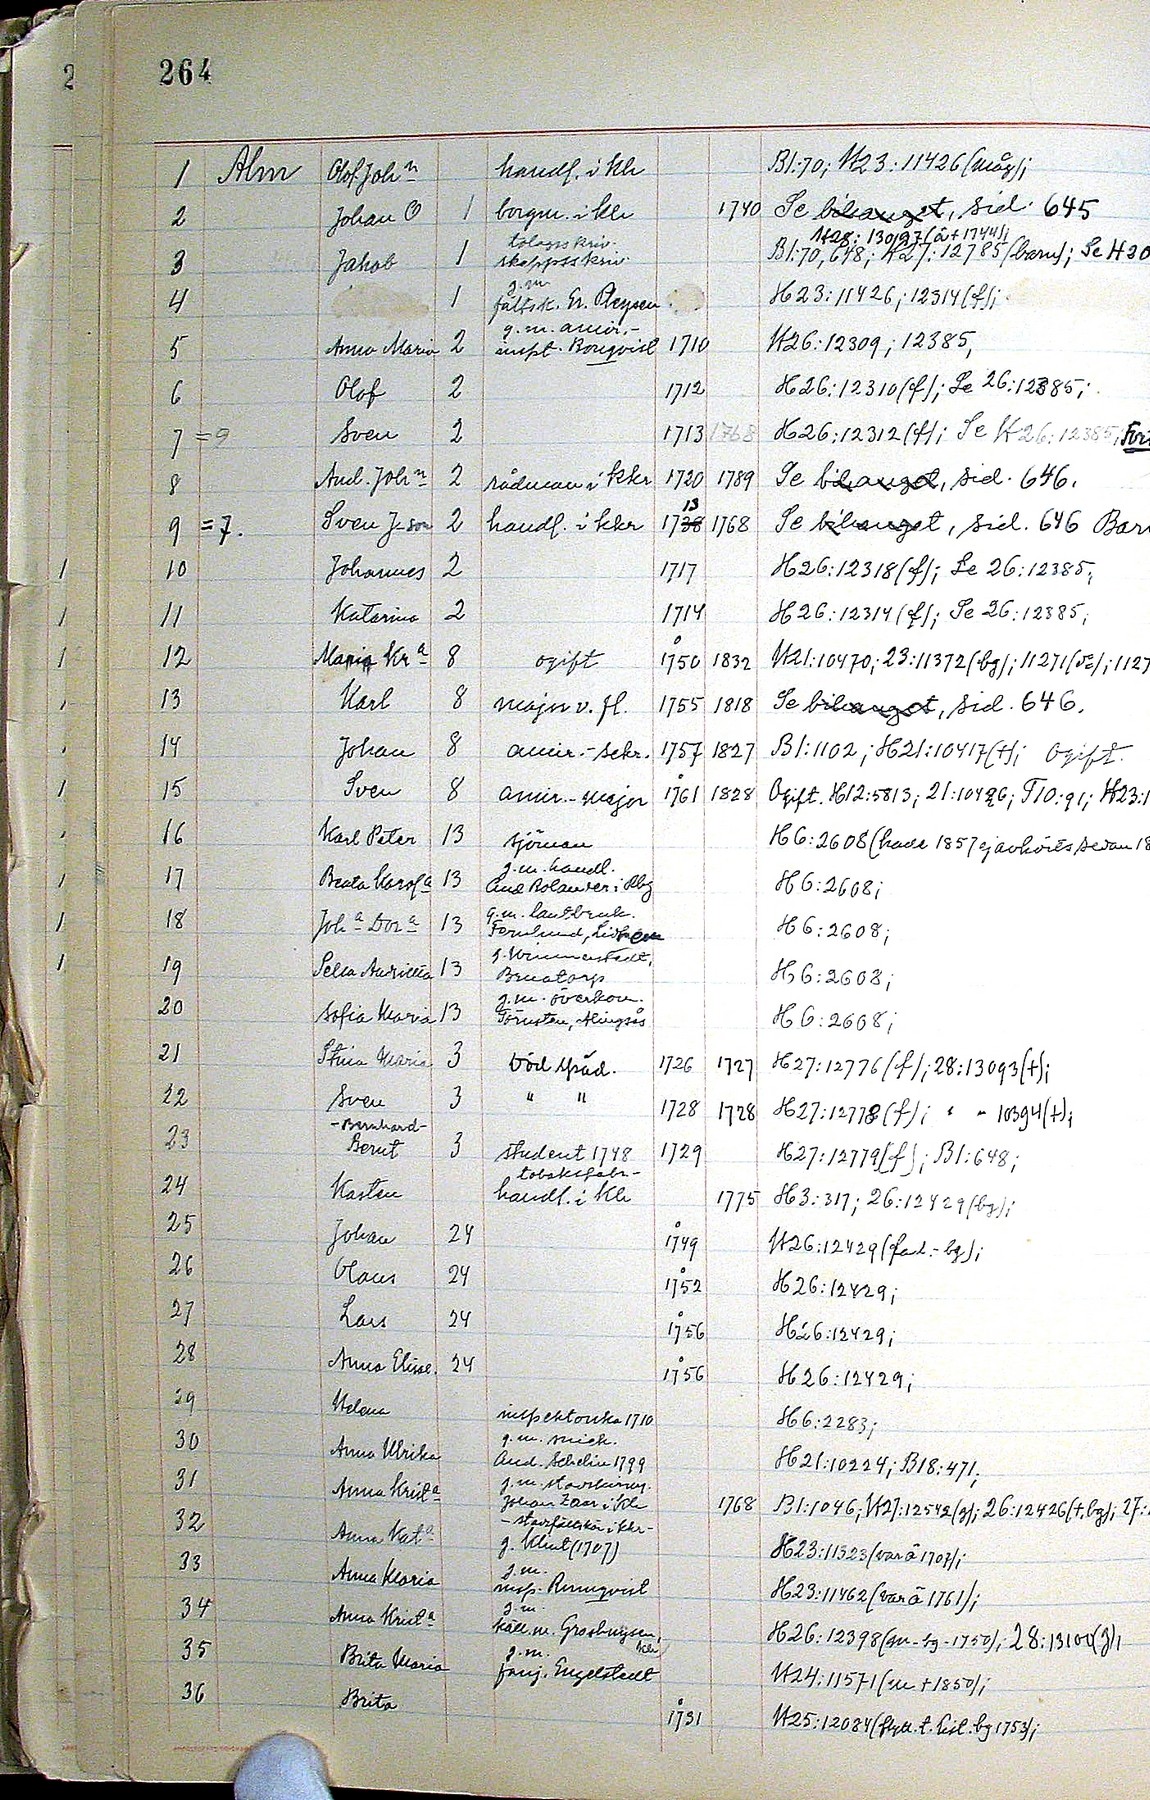 2
264
1 Alm Olof John handl. i Khr B1:70; H23:11426(måg);
2 Johan O 1 borgm. i khr 1740 Se bihanget, sid. 645
H28:13097(å+1744);
3 Jakob 1 skeppsskriv. B1:70, 648; H27:12785(barn); Se H20
4 1 g.m. fältsk. Er. Pleysen H23:11426; 12314(f);
5 Anna Maria 2 g.m. amir.- inspt. Bornqvist 1710 H26:12309; 12385,
6 Olof 2 1712 H26:12310(f); Se 26:12385;
7 =9 Sven 2 1713 1768 H26:12312(f); Se H26:12385;
8 And. John 2 rådman i kkr 1720 1789 Se bihanget, sid. 646.
13
9 =7. Sven J-son 2 handl. i kkr 1738 1768 Se bihanget, sid. 646 Barn
1 10 Johannes 2 1717 H26:12318(f); Se 26:12385;
1 11 Katarina 2 1714 H26:12314(f); Se 26:12385;
1 12 Maria Kra 8 ogift 1750 1832 H21:10470; 23:11372(bg); 11271(Tc); 1127
13 Karl 8 major v. fl. 1755 1818 Se bihanget, sid. 646.
14 Johan 8 amir.-sekr. 1757 1827 B1:1102; H21:10417(+); Ogift.
1 15 Sven 8 amir.-major 1761 1828 Ogift. H12:5813; 21:10426; T10:91; H23:1
16 Karl Peter 13 sjöman H6:2608(hade 1857 ej avhörts sedan 18
1 17 Beata Karola 13 g.m. handl. And Bolander i Rbg H6:2608;
1 18 Joha Dora 13 g.m. lantbruk. Fernlund, H6:2608;
1 19 Selia Aurillia 13 g. Wimmerstedt, Bredatorp H6:2608;
20 Sofia Maria 13 g.m. överkon. Törnsten, Alingsås H6:2608;
21 Stina Maria 3 död späd. 1726 1727 H27:12776(f); 28:13093(+);
22 Sven 3 " " 1728 1728 H27:12778(f); " " 10394(+);
-Bernhard-
23 Berut 3 student 1748 1729 H27:12779(f); B1:648;
24 Karsten tobaksfabr- handl. i Khr 1775 H3:317; 26:12429(bg);
25 Johan 24 1749 H26:12429(fad.-bg);
26 Olaus 24 1752 H26:12429;
27 Lars 24 1756 H26:12429;
28 Anna Elisa. 24 1756 H26:12429;
29 Helena inspektorska 1710 H6:2283;
30 Anna Ulrika g.m. snick. And. Schelin 1799 H21:10224; B18:471;
31 Anna Krista g.m. Johan Zaar i Khr 1768 B1:1046; H27:12542(g); 26:12426(+,bg); 27:
32 Anna Kata -stadsfältskär i kkr- g. Klint (1707) H23:11323(var å 1707);
33 Anna Maria g.m. insp. Runnqvist H23:11462(var å 1761);
34 Anna Krista g.m. käll.m. Grosbuysen, Khr H26:12398(m-bg-1750); 28:13100(g);
35 Brita Maria g.m. fanj. Engelstedt H24:11571(m +1850);
36 Brita 1731 H25:12084(flytt. t. Kisl. bg 1753);